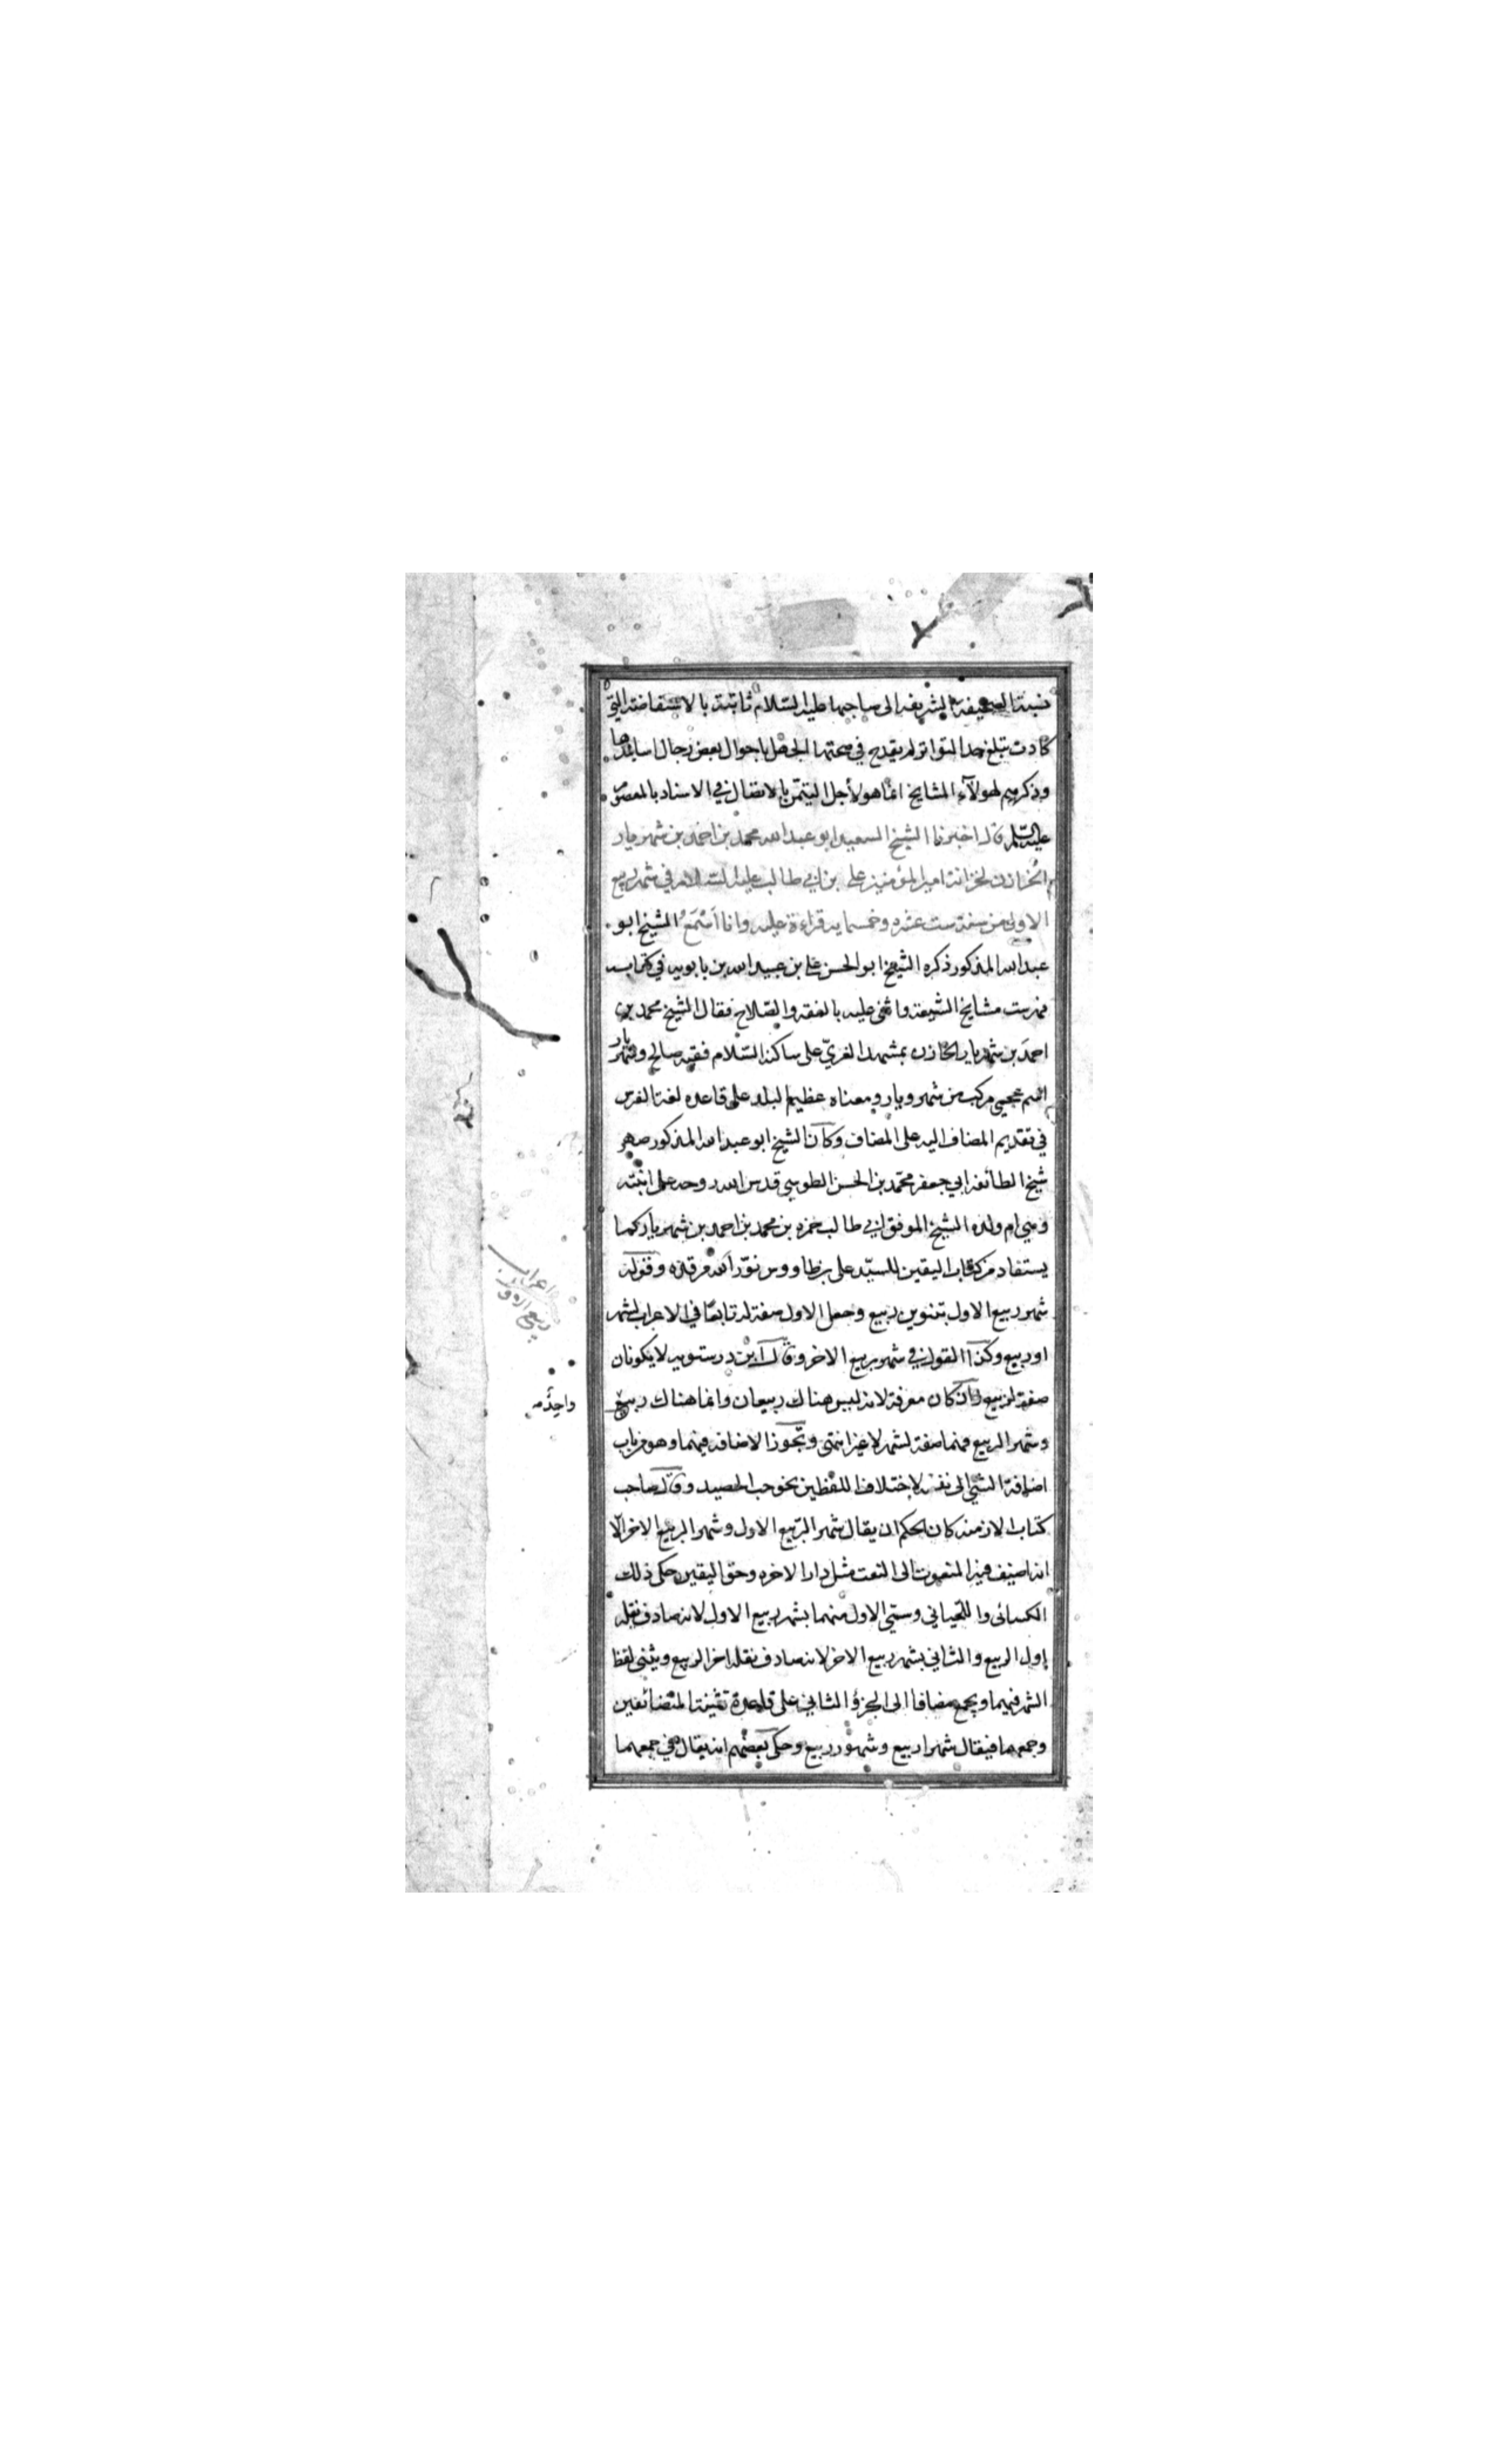 نسبة الصحيفة الشريفه الى صاحبها عليه السّلام ثابتة بالاستفاضة التي
كادت تبلغ حد التواتر لم يقدح في صحتها الجهل باحوال بعض رجال اسانيدها
وذكرهم لهولآء المشايخ انما هو لأجل التيمّن بالاتصال في الاسناد بالمعصوم
عليه السلم قال اخبرنا الشيخ السعيد ابو عبد الله محمد بن احمد بن شهريار
الخازن لخزانة امير المؤمنين علي بن ابي طالب عليه السلام في شهر ربيع
الاول من سنة ست عشره وخمسمايه قراءة عليه وانا أسْمَعُ الشيخ ابو
عبد الله المذكور ذكره الشيخ ابو الحسن علي بن عبيد الله بن بابويه في كتابه
فهرست مشايخ الشيعة واثنى عليه بالفقه والصّلاح فقال الشيخ محمد بن
احمد بن شهريار الخازن بمشهد الغريّ على ساكنه السّلام فقيه صالح وشهريار
اسم عجمي مركب من شهر ويار ومعناه عظيم البلد على قاعده لغة الفرس
في تقديم المضاف اليه على المضاف وكان الشيخ ابو عبد الله المذكور صهر
شيخ الطائفه ابي جعفر محمّد بن الحسن الطوسي قدس الله روحه على ابنته
وهي ام ولده الشيخ الموفق ابي طالب حمزه بن محمد بن احمد بن شهريار كما
يستفاد من كتاب اليقين للسيّد علي بن طاووس نوّر الله مرقده وقوله
شهر ربيع الاول بتنوين ربيع وجعل الاول صفة له تابعًا في الاعراب لشهر
او ربيع وكذا القول في شهر ربيع الاخر وقال ابن درستويه لا يكونان
صفة لربيع وان كان معرفة لانه ليس هناك ربيعان وانما هناك ربيع
وشهر الربيع فهما صفة لشهر لا غير انتهى وتجوز الاضافه فيهما وهو من باب
اضافة الشئ الى نفسه لاختلاف اللفظين نحو حب الحصيد وقال صاحب
كتاب الازمنه كان الحكم ان يقال شهر الرّبيع الاول وشهر الربيع الاخر الّا
انه اضيف فيه المنعوت الى النعت مثل دار الاخره وحق اليقين حكى ذلك
الكسائى واللّحياني وسمّي الاول منهما بشهر ربيع الاول لانه صادف نقله
اول الربيع والثاني بشهر ربيع الاخر لانه صادف نقله اخر الربيع ويثنى لفظ
الشهر فيهما ويجمع مضافا الى الجزؤ الثاني على قاعدة تثنية المتضائفين
وجمعهما فيقال شهرا ربيع وشهور ربيع وحكى بعضهم انه يقال في جمعهما
اعراب
ربيع الاول
واحدٌ صه